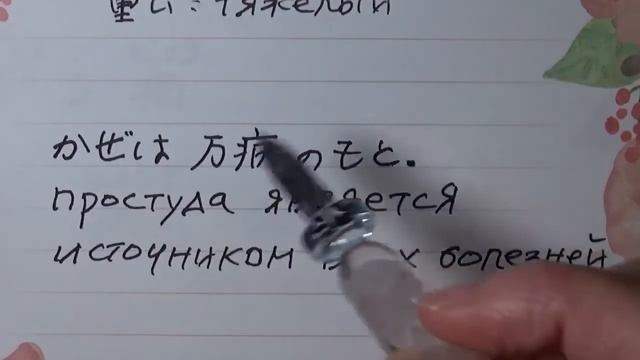 重い:тяжелый
かぜは万病のもと.
простуда является
источником всех болезней